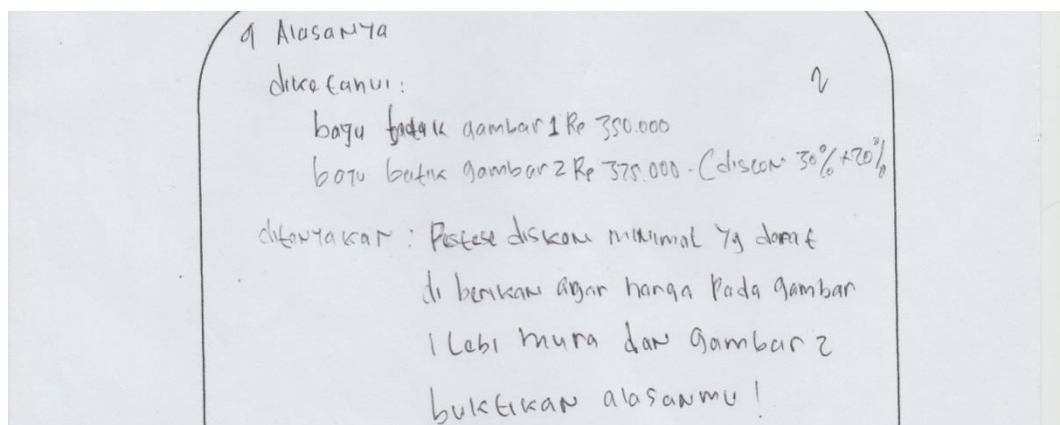 9 Alasanya
diketahui:
2
baju batik gambar 1 Rp 350.000
baju batik gambar 2 Rp 375.000. (discon 30% + 20%
ditanyakan : Pestese diskon minimal yg dapat
di berikan agar harga Pada gambar
1 Lebi mura dan gambar 2
buktikan alasanmu!